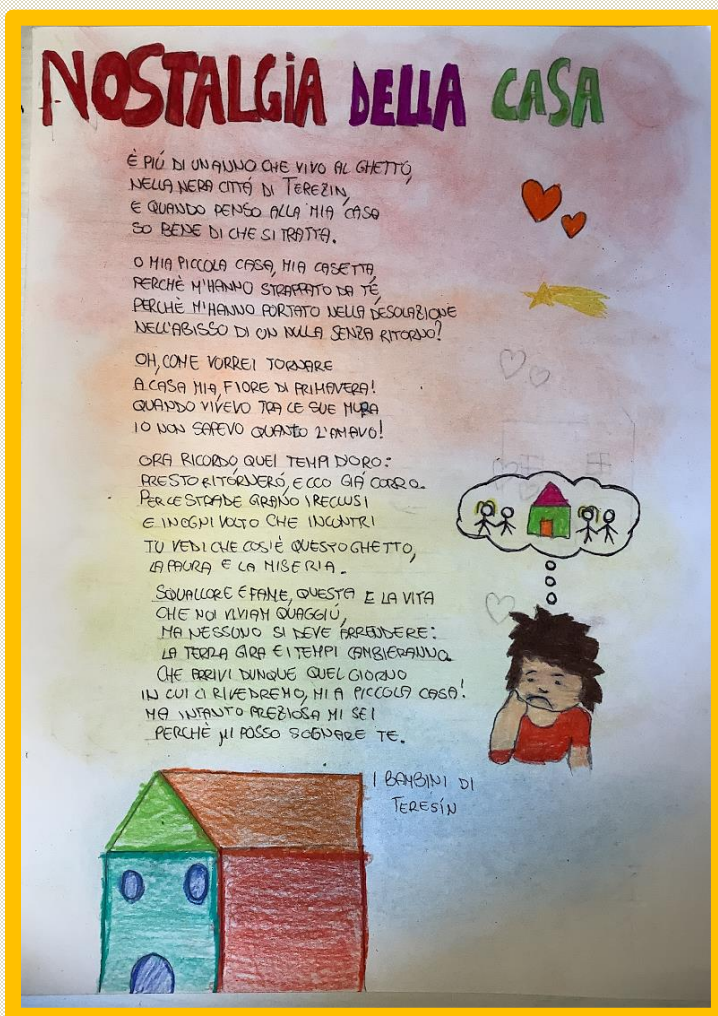 NOSTALGIA DELLA CASA
È PIÚ DI UN ANNO CHE VIVO AL GHETTO,
NELLA NERA CITTÁ DI TEREZIN,
E QUANDO PENSO ALLA MIA CASA
SO BENE DI CHE SI TRATTA.
O MIA PICCOLA CASA, MIA CASETTA,
PERCHÈ M'HANNO STRAPPATO DA TÉ,
PERCHÈ M'HANNO PORTATO NELLA DESOLAZIONE
NELL'ABISSO DI UN NULLA SENZA RITORNO?
OH, COME VORREI TORNARE
A CASA MIA, FIORE DI PRIMAVERA!
QUANDO VIVEVO TRA LE SUE MURA
IO NON SAPEVO QUANTO L'AMAVO!
ORA RICORDO QUEI TEMPI D'ORO:
PRESTO RITORNERÓ, ECCO GIÁ CORRO.
PER LE STRADE GIRANO I RECLUSI
E IN OGNI VOLTO CHE INCONTRI
TU VEDI CHE COS'È QUESTO GHETTO,
LA PAURA E LA MISERIA.
SQUALLORE E FAME, QUESTA E LA VITA
CHE NOI VIVIAM QUAGGIÚ,
MA NESSUNO SI DEVE ARRENDERE:
LA TERRA GIRA E I TEMPI CAMBIERANNO.
CHE ARRIVI DUNQUE QUEL GIORNO
IN CUI CI RIVEDREMO, MIA PICCOLA CASA!
MA INTANTO PREZIOSA MI SEI
PERCHÈ MI POSSO SOGNARE TE.
I BAMBINI DI
TERESÍN